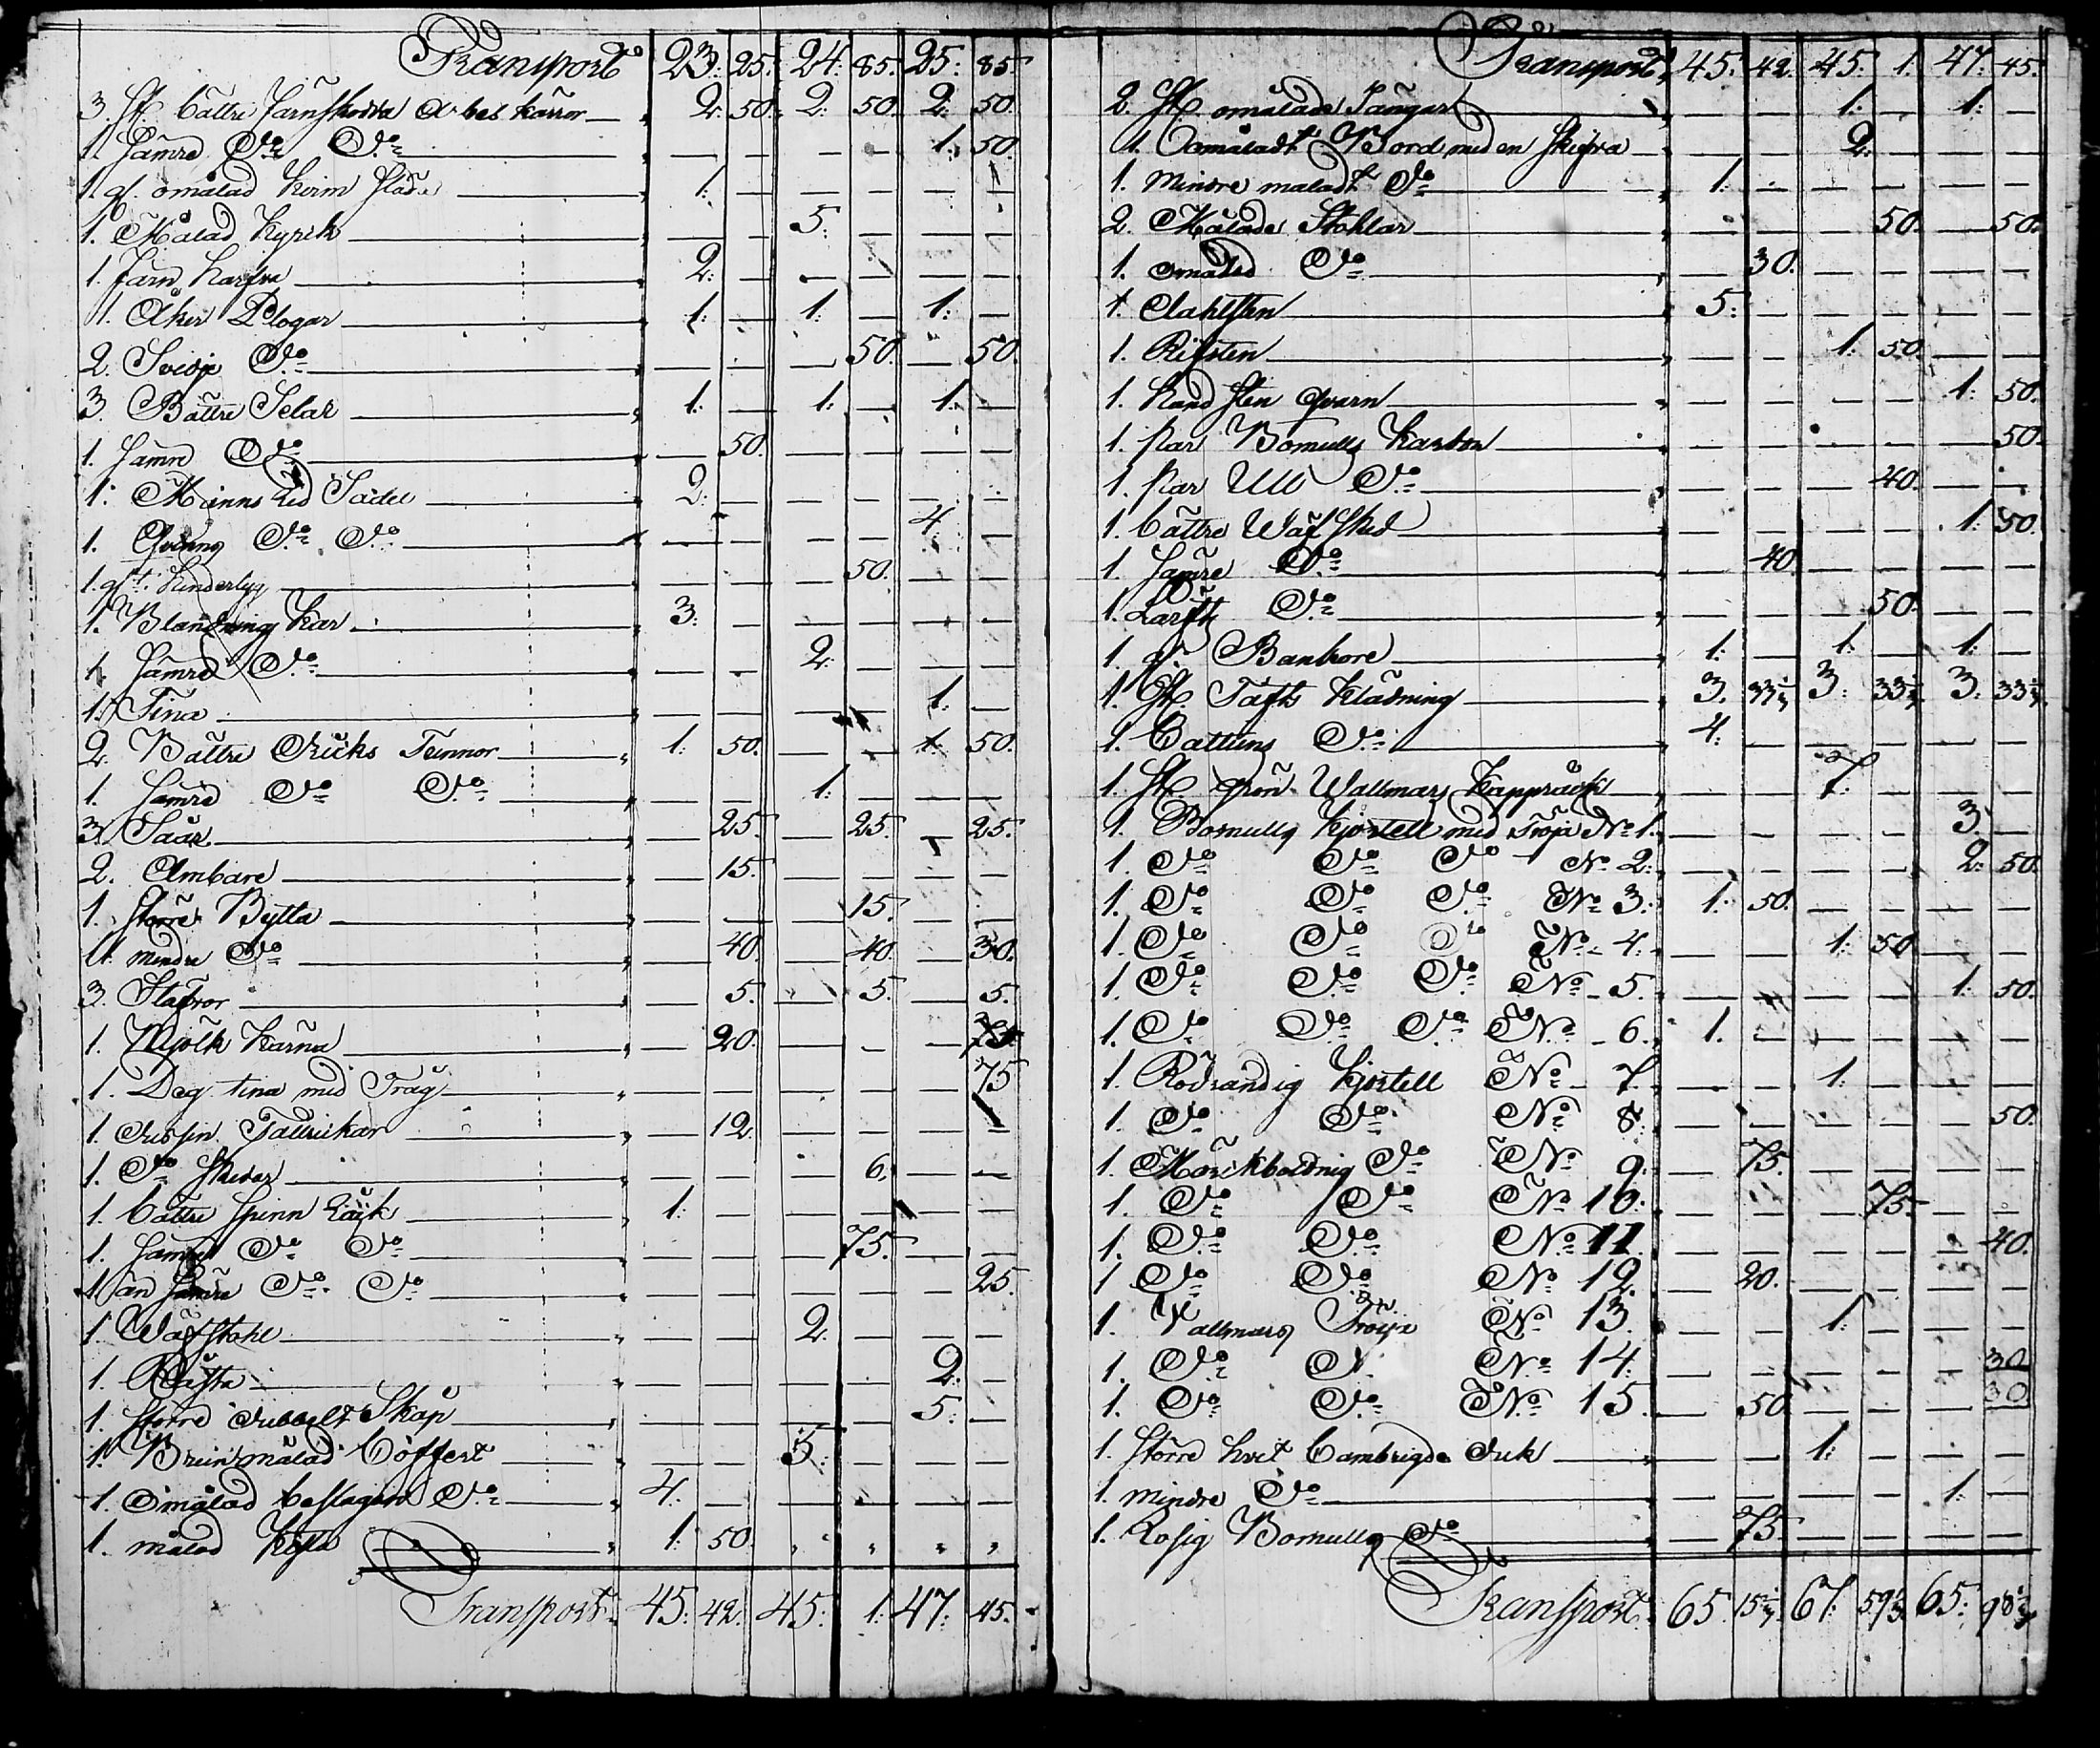 Transport 23: 25. 24: 85. 25: 85.
3. St. bättre Järnskodda Arbes kärror — 2: 50. 2: 50. 2: 50.
1. Sämre D:o D:o — — — — 1: 50.
1. g:l omålad 1: — — — — —
1. Målad Kyrik — — 5: — — —
1. Järn Harfva 2: — — — — —
1. Åker Plogar 1: — 1: — 1: —
2. Svidje D:o — — — 50. — 50.
3. Bättre Selar 1: — 1: — 1: —
1. Sämre D:o — 50. — — — —
1. Manns Rid Sadel 2: — — — — —
1. Qvinns D:o D:o — — — — 4 —
1. — — — 50. — —
1. Blandning Kar 3: — — — — —
1. Sämre D:o — — 2. — — —
1. Tina — — — — 1. —
2. Bättre Dricks Tunnor 1: 50. — — 1. 50.
1. Sämre D:o D:o — — 1: — — —
3. Såär — 25. — 25. — 25.
2. Ämbare — 15. — — — —
1. större Bytta — — — 15. — —
11. mindre D:o — 40. — 40. — 30.
3. Stäfvor — 5. — 5. — 5.
1. Mjölk Kärna — 20. — — —
1. Deg tina med Tråg — — — — — 75
1. dussin Tallrickar — 12. — — — —
1. D:o Skedar — — — 6. — —
1. bättre Spinn Råck 1: — — — — —
1. Sämre D:o D:o — — — 75. — —
1 än Sämre D:o D:o — — — — — 25.
1. Wäfstohl — — 2. — — —
1. — — — — 2. —
1. större dubbelt Skåp — — — — 5: —
1. Brunmålad Coffert — — 5: — — —
1. Omålad beslagen D:o 4. — — — — —
1. målad Kista 1: 50. „ „ „ „
Transport 45: 42. 45: 1: 47: 45.
Transport 45: 42. 45: 1. 47: 45.
2. St. omålade Sängar — — 1: — 1: —
1. Omåladt Bord med en Skifva — — 2. — — —
1. Mindre måladt D:o 1. — — — — —
2. Målade Stohlar — — — 50. — 50.
1. omålad D:o — 30. — — — —
1. Slahlsten 5: — — — — —
1. Rifsten — — 1: 50. — —
1. Hand sten qvarn — — — — 1: 50.
1. Par Bomulls Kardor — — — — — 50.
1. Par Ull D:o — — — 40. — —
1. bättre Wäf Sked — — — — 1: 50.
1. Sämre D:o — 40. — — — —
1. Lärfts D:o — — — 50. — —
1. g:l Bankore 1: — 1: — 1: —
1. St. Tafts Klädning 3. 33⅓ 3: 33⅓ 3: 33⅓
1. Cattuns D:o 4: — — — — —
1. St. grön Wallmars Kappråck — — 7. — — —
1. Bomulls Kjortell med Tröja N:o 1. — — — — 3. —
1. D:o D:o D:o N:o 2: — — — — 2: 50.
1. D:o D:o D:o N:o 3: 1: 50. — — — —
1. D:o D:o D:o N:o 4: — — 1: 50 — —
1. D:o D:o D:o N:o 5. — — — — 1: 50.
1. D:o D:o D:o N:o 6. 1. — — — — —
1. Rödrandig Kjortell N:o 7. — — 1: — — —
1. D:o D:o N:o 8. — — — — — 50.
1. D:o N:o 9. — 75. — — — —
1. D:o D:o N:o 10. — — — 75. — —
1. D:o D:o N:o 11. — — — — — 40.
1 D:o D:o N:o 12. — 20. — — — —
1. Vallmars Tröija N:o 13. — — 1: — — —
1. D:o D. N:o 14. — — — — — 30
1. D:o D:o N:o 15. — 50. — — — 30
1. större hvit Cambrigde duk — — 1: — — —
1. mindre D:o — — — — 1: —
1. Rosig Bomulls D:o — 75. — — — —
Transport 65. 15⅓ 67: 59⅓ 65: 98⅓